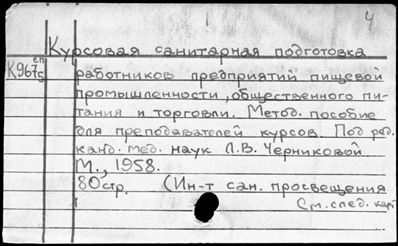 4
Курсовая санитарная подготовка
К967 еп
5 работников предприятий пищевой
промышленности, общественного пи-
тания и торговли. Метод. пособие
для преподавателей курсов. Под ред.
канд. мед. наук Л.В. Черниковой
М., 1958.
80стр. (Ин-т сан. просвещения
См. след. карт